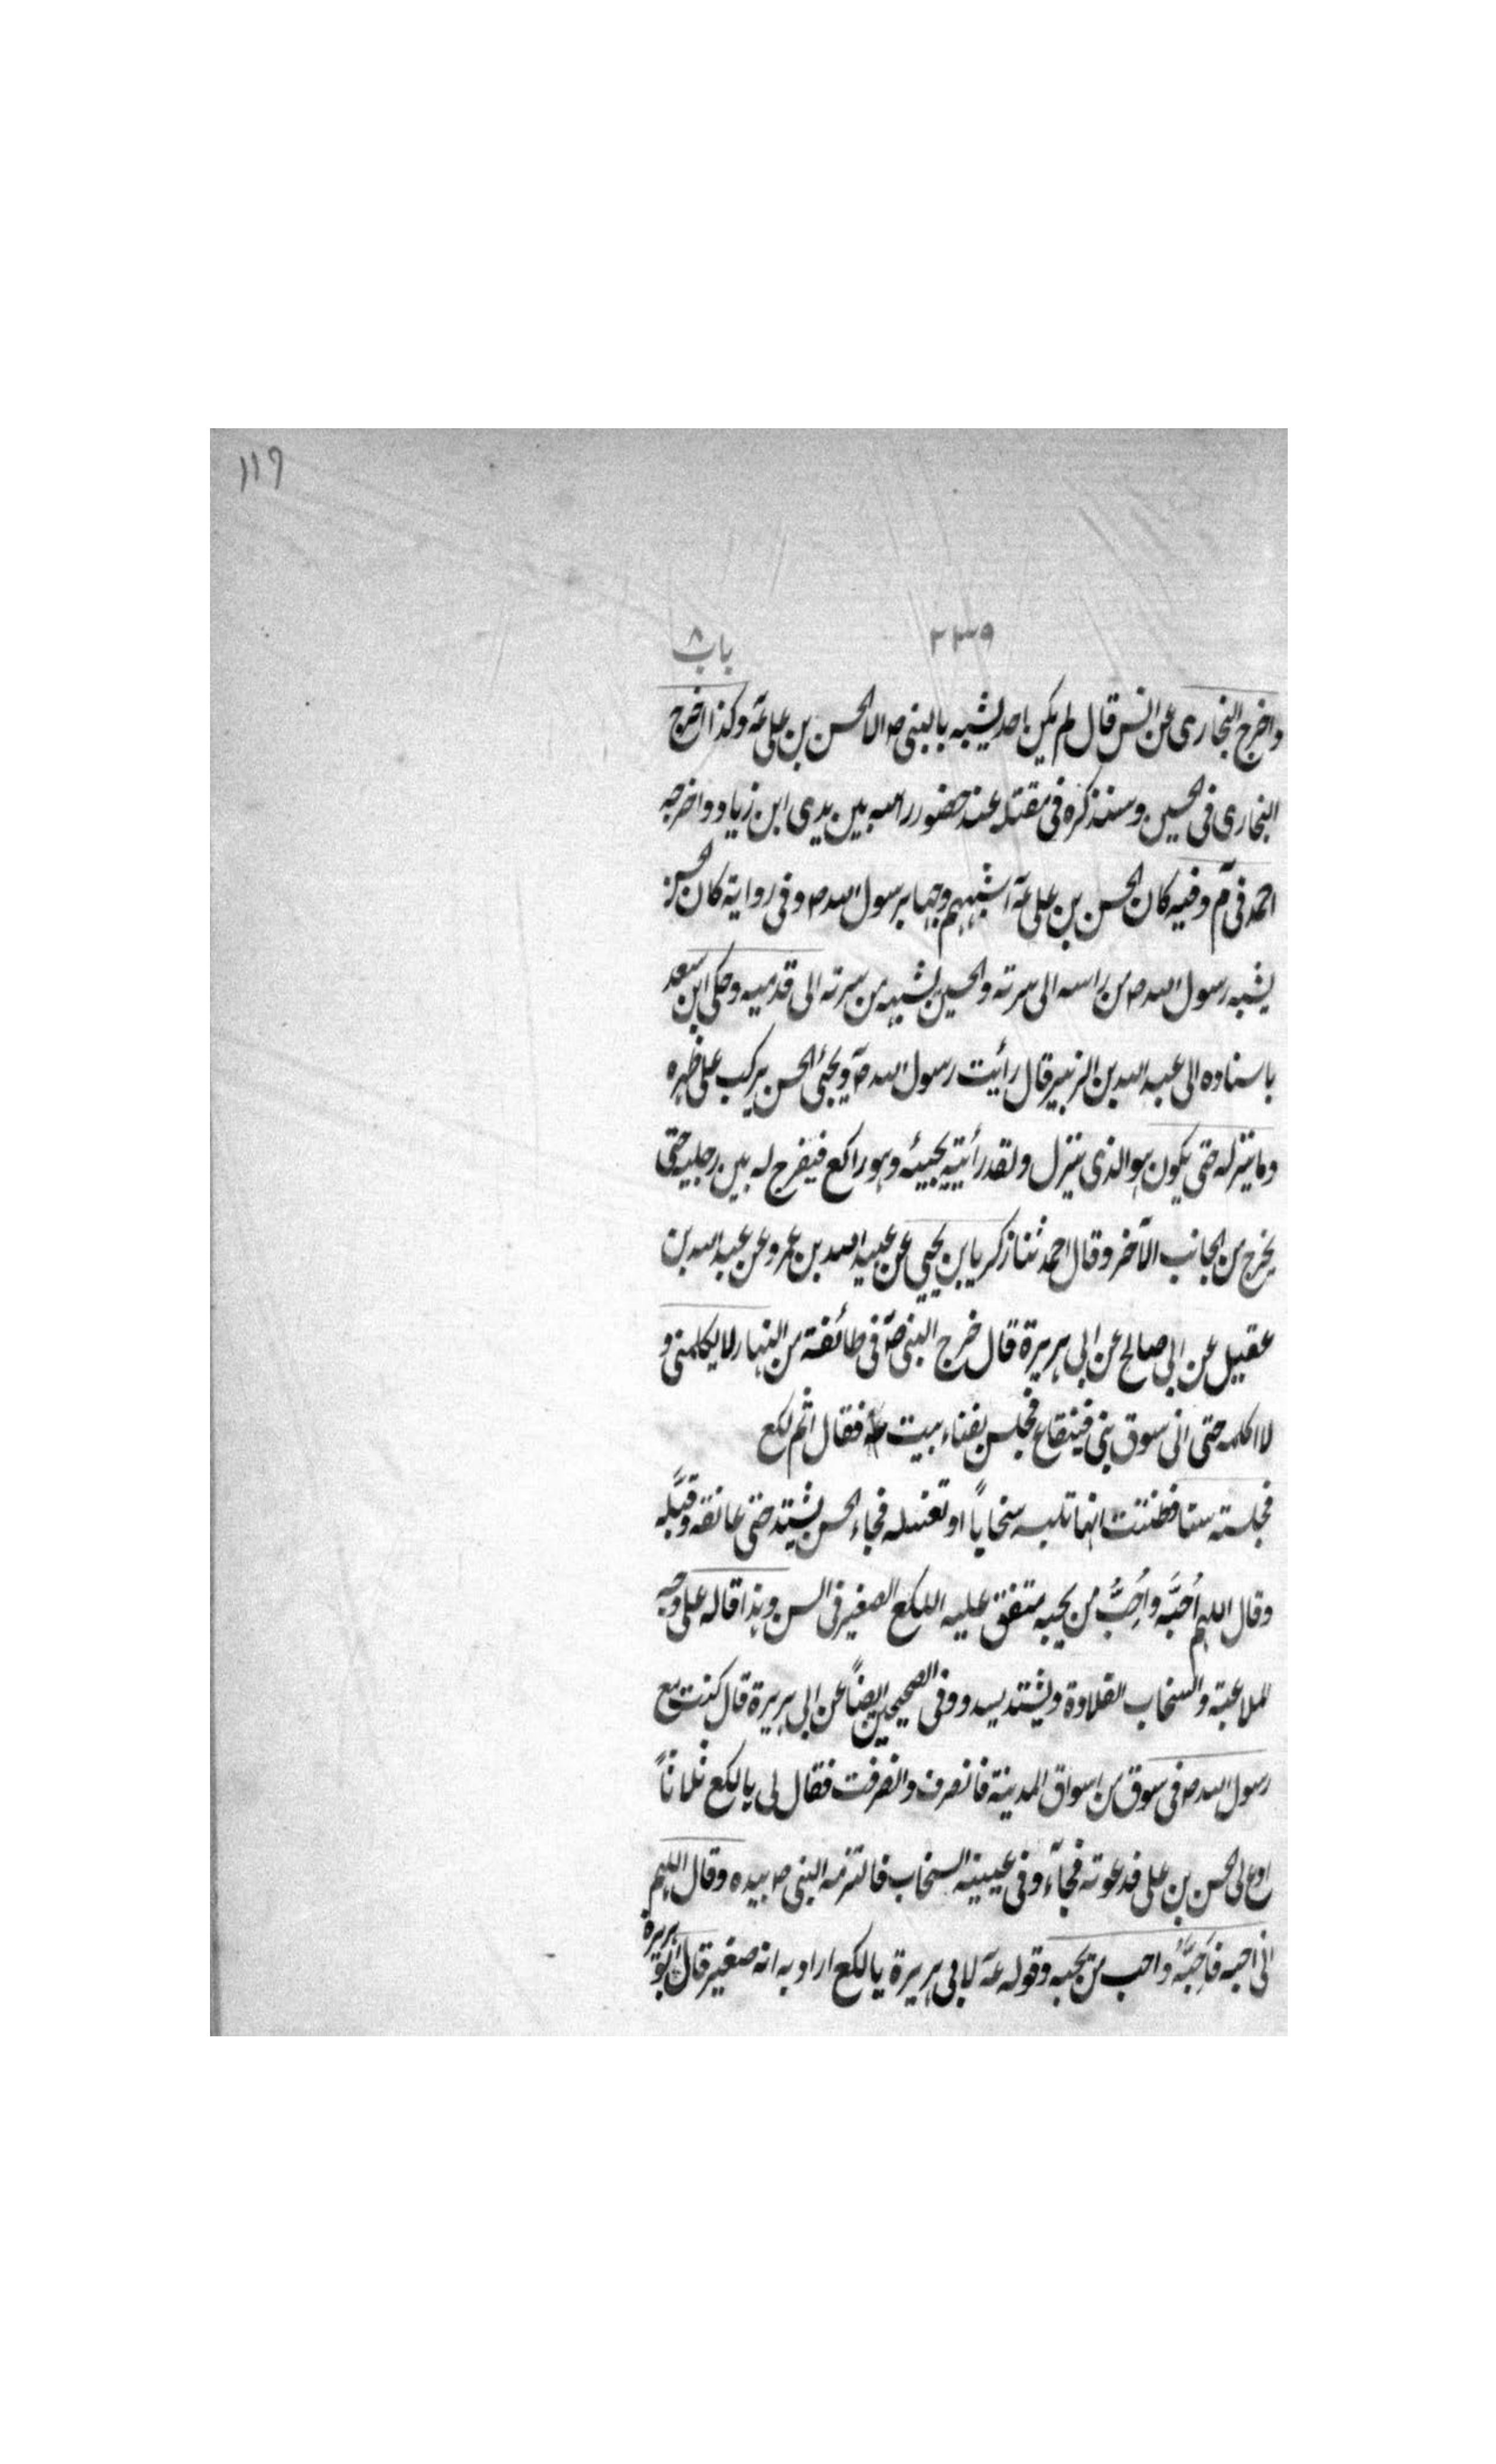 ١١٩
٢٣٩ باب ٨
واخرج البخاری عن انس قال لم یکن احد یشبه بالنبی ص الا الحسن بن علی عم وکذا اخرج
البخاری فی الحسین وسنذکره فی مقتله عند حضور راسه بین یدی ابن زیاد واخرجه
احمد فی م وفیه کان الحسن بن علی عم اشبههم وجها برسول الله ص وفی روایة کان الحسن
یشبه رسول الله ص من راسه الی سرته والحسین یشبهه من سرته الی قدمیه وحکی ابن سعد
باسناده الی عبد الله بن الزبیر قال رأیت رسول الله ص ویجئ الحسن یرکب علی ظهره
وما ینزله حتی یکون هو الذی ینزل ولقد رأیته یجیئه وهو راکع فیفرج له بین رجلیه حتی
یخرج من الجانب الآخر وقال احمد ثنا زکریا بن یحیی عن عبید الله بن عمرو عن عبد الله بن
عقیل عن ابی صالح عن ابی هریرة قال خرج النبی ص فی طائفة من النهار لا یکلمنی و
لا اکلمه حتی اتی سوق بنی قینقاع فجلس بفناء بیت فقال اثم لکع
فجلسته ستا فظننت انها تلبسه سخاباً او تغسله فجاء الحسن یشتد حتی عانقه وقبَّله
وقال اللهم اُحبَّه واَحِبُّ من یحبه متفق علیه اللکع الصغیر فی السن وهذا قاله علی وجه
الملاعبة والسخاب القلادة ویشتد یسد وفی الصحیحین ایضاً عن ابی هریرة قال کنت مع
رسول الله ص فی سوق من اسواق المدینة فانصرف وانصرفت فقال لی یا لکع ثلاثاً
ادع لی الحسن بن علی فدعوته فجآء وفی عیینه السخاب فالتزمه النبی ص بیده وقال اللهم
انی احبه فاَحبَّه واحب من یحبه وقوله عم لابی هریرة یا لکع اراد به انه صغیر قال ابو هریرة